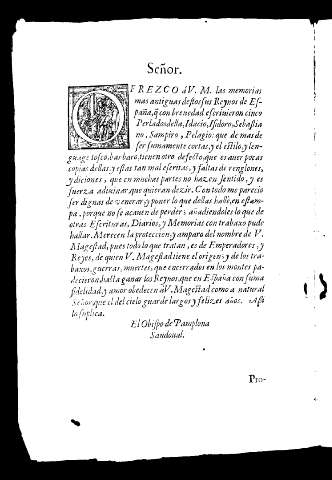 Señor.
OFREZCO á V. M. las memorias
mas antiguas destos sus Reynos de Es-
paña, q̃ con breuedad escriuieron cinco
Perlados della, Idacio, Isidoro, Sebastia
no, Sampiro, Pelagio: que de mas de
ser sumamente cortas, y el estilo, y len-
guage tosco, barbaro, tienen otro defecto, que es auer pocas
copias dellas, y estas tan mal escritas, y faltas de renglones,
y diciones, que en muchas partes no hazen sentido, y es
fuerza adiuinar que quieran dezir. Con todo me parecio
ser dignas de venerar y poner lo que dellas hallè, en estam-
pa, porque no se acauen de perder; añadiendoles lo que de
otras Escrituras, Diarios, y Memorias con trabaxo pude
hallar. Merecen la proteccion, y amparo del nombre de V.
Magestad, pues todo lo que tratan, es de Emperadores, y
Reyes, de quien V. Magestad tiene el origen; y de los tra-
baxos, guerras, muertes, que encerrados en los montes pa-
decieron, hasta ganar los Reynos, que en España con suma
fidelidad, y amor obedecen á V. Magestad como a natural
Señor que el del cielo guarde largos y felizes años. Assi
lo suplica.
El Obispo de Pamplona
Sandoual.
Pro-